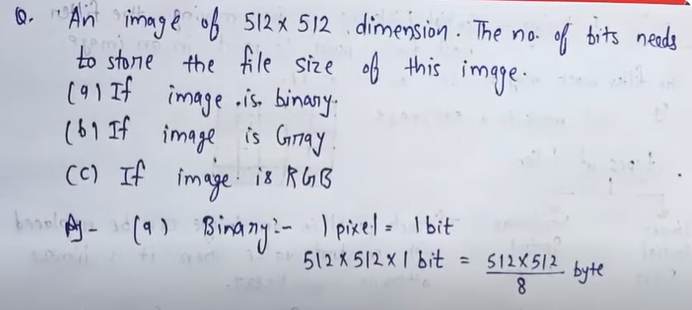 Q. An image of 512 x 512 dimension. The no. of bits needs
to store the file size of this image.
(a) If image is binary.
(b) If image is Gray
(c) If image is RGB
A - (a) Binary:- 1 pixel = 1 bit
512 x 512 x 1 bit = 512 x 512 / 8 byte